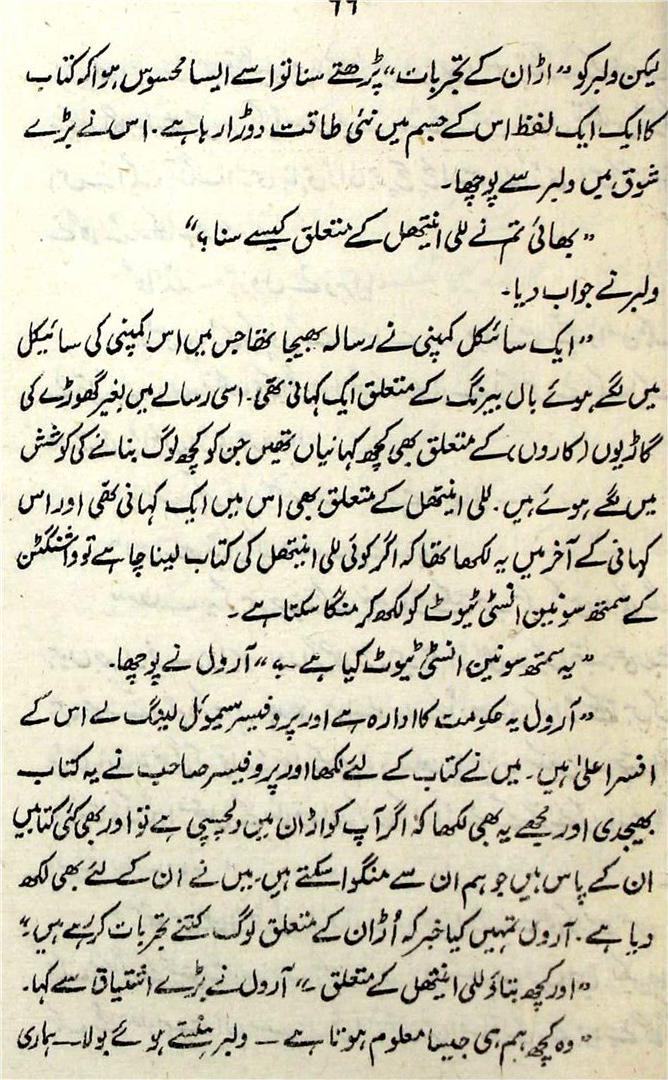 ۶۶
لیکن ولبر کو "اڑان کے تجربات" پڑھتے سنا تو اسے ایسا محسوس ہوا کہ کتاب
کا ایک ایک لفظ اس کے جسم میں نئی طاقت دوڑا رہا ہے۔ اس نے بڑے
شوق میں ولبر سے پوچھا۔
"بھائی تم نے للی اینتھل کے متعلق کیسے سنا؟"
ولبر نے جواب دیا۔
"ایک سائیکل کمپنی نے رسالہ بھیجا تھا جس میں اس کمپنی کی سائیکل
میں لگے ہوئے بال بیرنگ کے متعلق ایک کہانی تھی۔ اسی رسالے میں بغیر گھوڑے کی
گاڑیوں (کاروں) کے متعلق بھی کچھ کہانیاں تھیں جن کو کچھ لوگ بنانے کی کوشش
میں لگے ہوئے ہیں۔ للی اینتھل کے متعلق بھی اس میں ایک کہانی تھی اور اس
کہانی کے آخر میں یہ لکھا تھا کہ اگر کوئی للی اینتھل کی کتاب لینا چاہے تو واشنگٹن
کے سمتھ سونین انسٹی ٹیوٹ کو لکھ کر منگا سکتا ہے۔
"یہ سمتھ سونین انسٹی ٹیوٹ کیا ہے؟" آرول نے پوچھا۔
"آرول یہ حکومت کا ادارہ ہے اور پروفیسر سیموئل لینگ لے اس کے
افسر اعلیٰ ہیں۔ میں نے کتاب کے لئے لکھا اور پروفیسر صاحب نے یہ کتاب
بھیجدی اور مجھے یہ بھی لکھا کہ اگر آپ کو اڑان میں دلچسپی ہے تو اور بھی کئی کتابیں
ان کے پاس ہیں جو ہم ان سے منگوا سکتے ہیں۔ میں نے ان کے لئے بھی لکھ
دیا ہے۔ آرول تمہیں کیا خبر کہ اُڑان کے متعلق لوگ کتنے تجربات کر رہے ہیں۔"
"اور کچھ بتاؤ للی اینتھل کے متعلق۔" آرول نے بڑے اشتیاق سے کہا۔
"وہ کچھ ہم ہی جیسا معلوم ہوتا ہے — ولبر ہنستے ہوئے بولا— ہماری